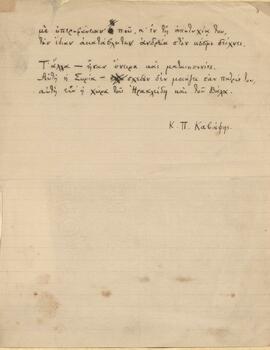 με ὑπερηφάνειαν πού, κ' ἐν τῇ ἀποτυχίᾳ του,
τὴν ἴδιαν ἀκατάβλητην ἀνδρεία στὸν κόσμο δείχνει.
Τ' ἄλλα — ἦσαν ὄνειρα καὶ ματαιοπονίες.
Αὐτὴ ἡ Συρία — σχεδὸν δὲν μοιάζει σὰν πατρίς του,
αὐτὴ εἶν' ἡ χώρα τοῦ Ἡρακλείδη καὶ τοῦ Βάλα.
Κ. Π. Καβάφης